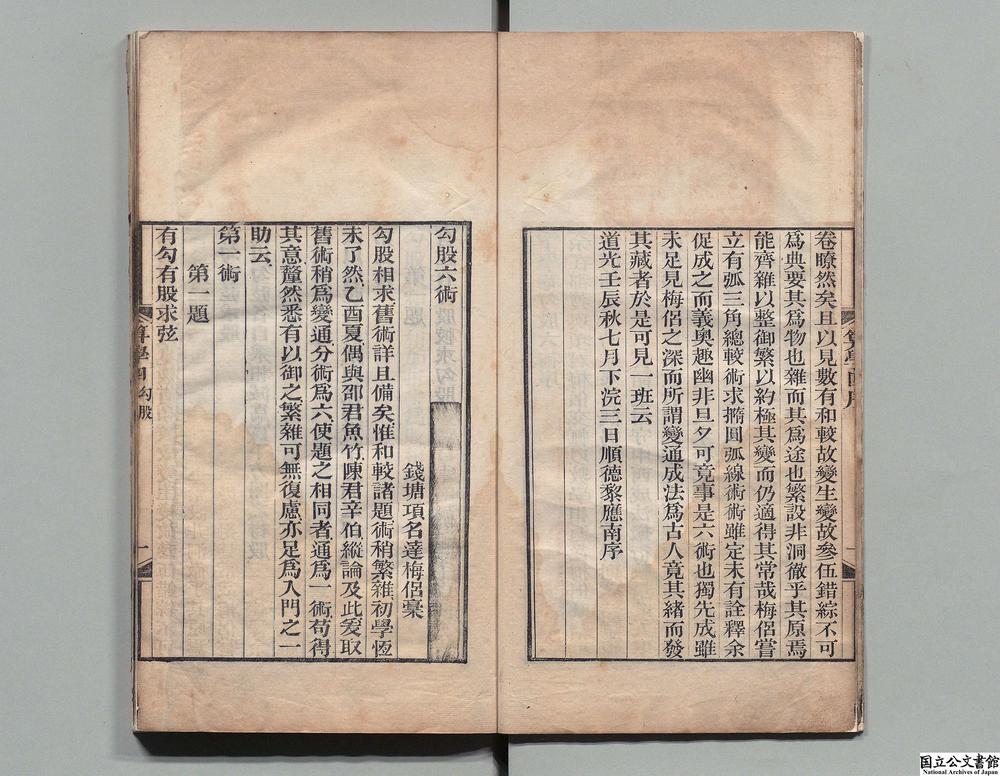 卷瞭然矣且以見數有和較故變生變故參伍錯綜不可
爲典要其爲物也雜而其爲途也繁設非洞徹乎其原焉
能齊雜以整御繁以約極其變而仍適得其常哉梅侶嘗
立有弧三角總較術求橢圓弧線術術雖定未有詮釋余
促成之而義奧趣幽非旦夕可竟事是六術也獨先成雖
未足見梅侶之深而所謂變通成法爲古人竟其緒而發
其藏者於是可見一班云
道光壬辰秋七月下浣三日順德黎應南序
勾股六術
錢塘項名達梅侶稾
勾股相求舊術詳且備矣惟和較諸題術稍繁雜初學恆
未了然乙酉夏偶與邵君魚竹陳君辛伯縱論及此爰取
舊術稍爲變通分術爲六使題之相同者通爲一術苟得
其意釐然悉有以御之繁雜可無復慮亦足爲入門之一
助云
第一術
第一題
有勾有股求弦
算學
勾股
一
国立公文書館
National Archives of Japan